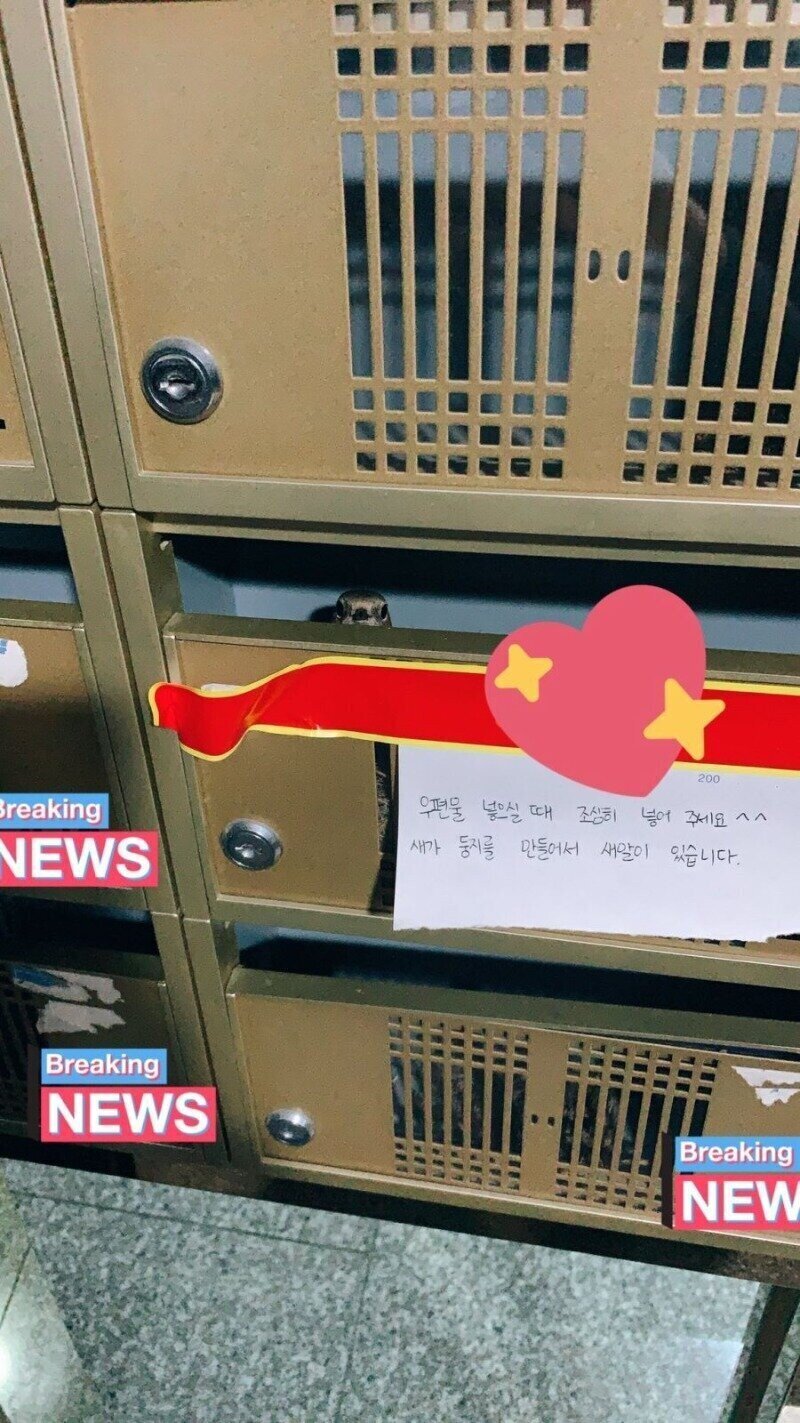 200
우편물 넣으실 때 조심히 넣어 주세요 ^^
새가 둥지를 만들어서 새알이 있습니다.
Breaking
NEWS
Breaking
NEWS
Breaking
NEW